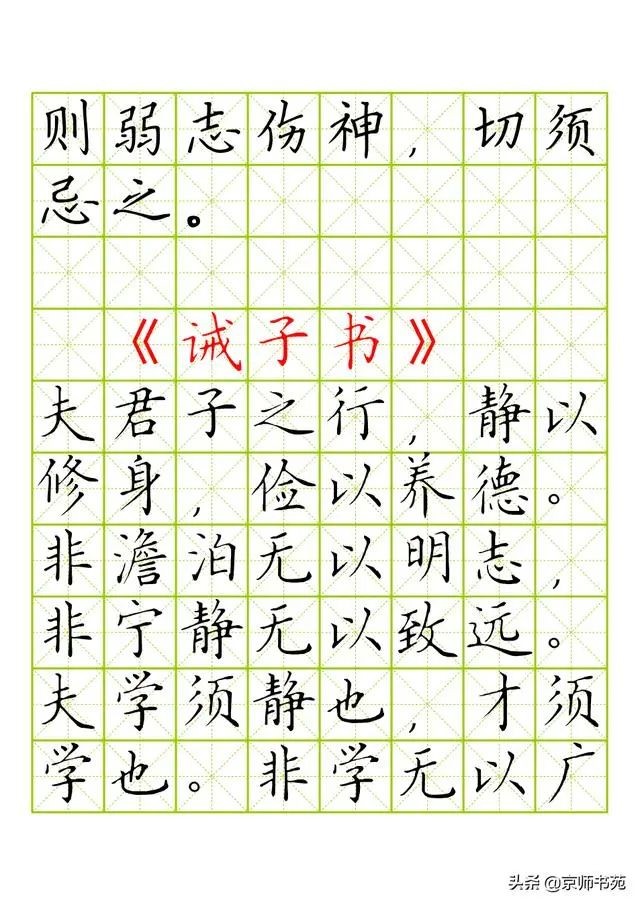 则弱志伤神，切须
忌之。
《诫子书》
夫君子之行，静以
修身，俭以养德。
非澹泊无以明志，
非宁静无以致远。
夫学须静也，才须
学也。非学无以广
头条 @京师书苑